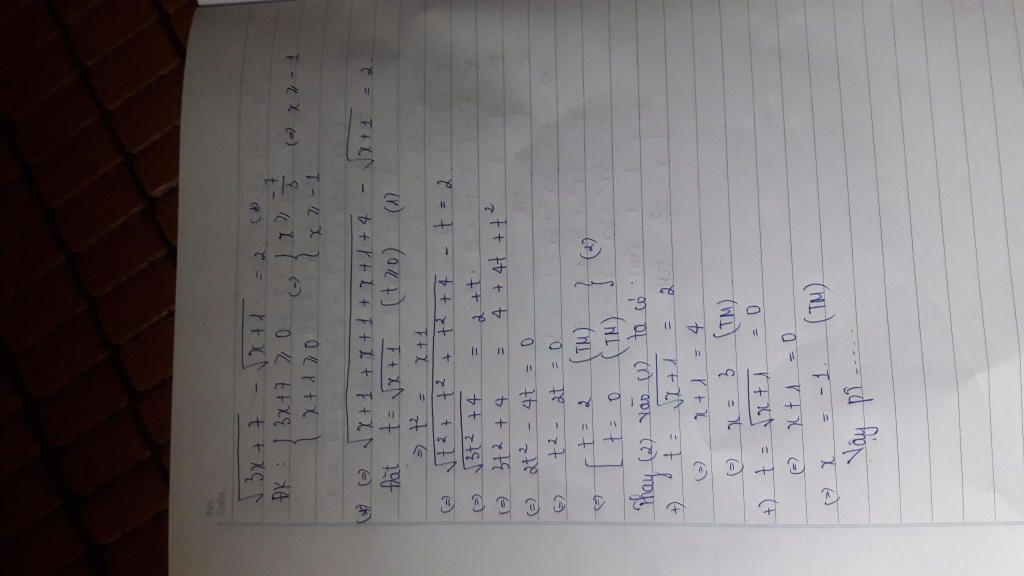 No.
Date
√(3x+7) - √(x+1) = 2 (*)
ĐK: { 3x+7 ≥ 0 (=) { x ≥ -7/3 (=) x ≥ -1
{ x+1 ≥ 0 { x ≥ -1
(*) (=) √(x+1+x+1+x+1+4) - √(x+1) = 2
Đặt t = √(x+1) (t ≥ 0) (1)
=) t² = x+1
(=) √(t²+t²+t²+4) - t = 2
(=) √(3t²+4) = 2+t
(=) 3t²+4 = 4+4t+t²
(=) 2t²-4t = 0
(=) t²-2t = 0
(=) [ t = 2 (TM) } (2)
[ t = 0 (TM) }
Thay (2) vào (1) ta có:
+) t = √(x+1) = 2
(=) x+1 = 4
(=) x = 3 (TM)
+) t = √(x+1) = 0
(=) x+1 = 0
(=) x = -1 (TM)
Vậy pt .....